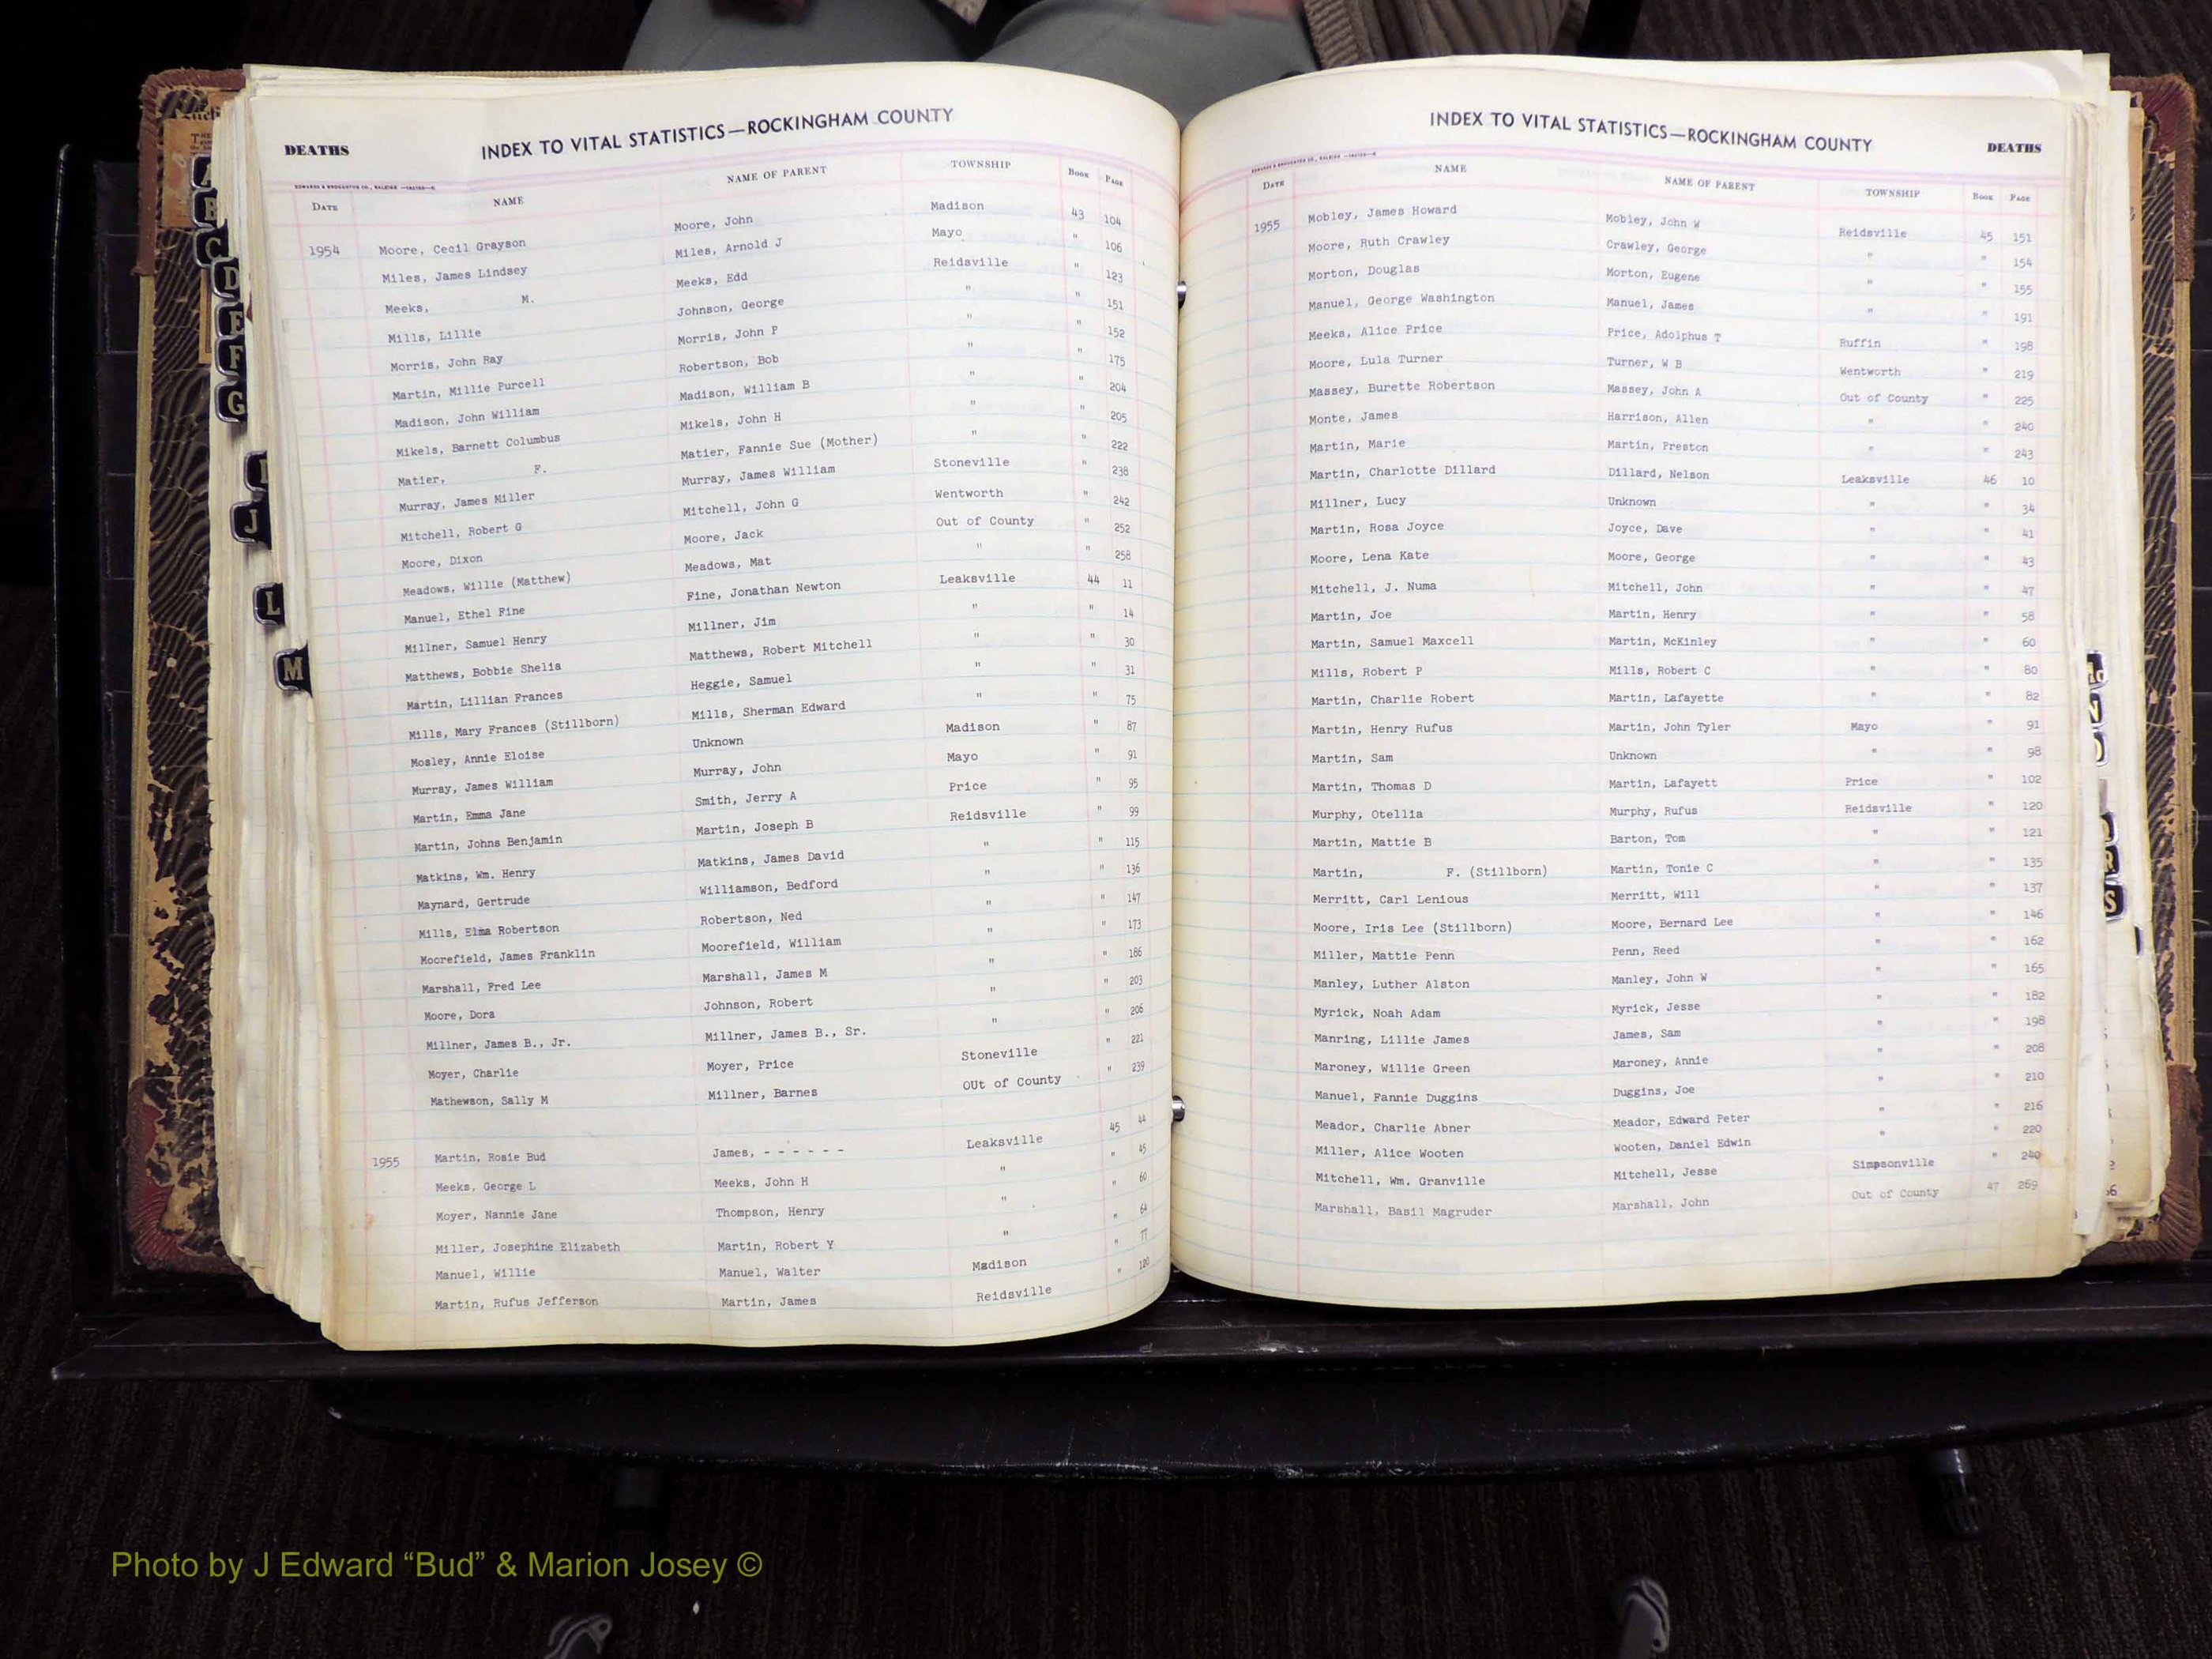 DEATHS INDEX TO VITAL STATISTICS—ROCKINGHAM COUNTY
EDWARDS & BROUGHTON CO., RALEIGH
DATE NAME NAME OF PARENT TOWNSHIP BOOK PAGE
1954 Moore, Cecil Grayson Moore, John Madison 43 104
Miles, James Lindsey Miles, Arnold J Mayo " 106
Meeks, M. Meeks, Edd Reidsville " 123
Mills, Lillie Johnson, George " " 151
Morris, John Ray Morris, John P " " 152
Martin, Millie Purcell Robertson, Bob " " 175
Madison, John William Madison, William B " " 204
Mikels, Barnett Columbus Mikels, John H " " 205
Matier, F. Matier, Fannie Sue (Mother) " " 222
Murray, James Miller Murray, James William Stoneville " 238
Mitchell, Robert G Mitchell, John G Wentworth " 242
Moore, Dixon Moore, Jack Out of County " 252
Meadows, Willie (Matthew) Meadows, Mat " " 258
Manuel, Ethel Fine Fine, Jonathan Newton Leaksville 44 11
Millner, Samuel Henry Millner, Jim " " 14
Matthews, Bobbie Shelia Matthews, Robert Mitchell " " 30
Martin, Lillian Frances Heggie, Samuel " " 31
Mills, Mary Frances (Stillborn) Mills, Sherman Edward " " 75
Mosley, Annie Eloise Unknown Madison " 87
Murray, James William Murray, John Mayo " 91
Martin, Emma Jane Smith, Jerry A Price " 95
Martin, Johns Benjamin Martin, Joseph B Reidsville " 99
Matkins, Wm. Henry Matkins, James David " " 115
Maynard, Gertrude Williamson, Bedford " " 136
Mills, Elma Robertson Robertson, Ned " " 147
Moorefield, James Franklin Moorefield, William " " 173
Marshall, Fred Lee Marshall, James M " " 186
Moore, Dora Johnson, Robert " " 203
Millner, James B., Jr. Millner, James B., Sr. " " 206
Moyer, Charlie Moyer, Price Stoneville " 221
Mathewson, Sally M Millner, Barnes OUt of County " 239
1955 Martin, Rosie Bud James, - - - - - - Leaksville 45 44
Meeks, George L Meeks, John H " " 45
Moyer, Nannie Jane Thompson, Henry " " 60
Miller, Josephine Elizabeth Martin, Robert Y " " 64
Manuel, Willie Manuel, Walter Madison " 77
Martin, Rufus Jefferson Martin, James Reidsville " 120
INDEX TO VITAL STATISTICS—ROCKINGHAM COUNTY DEATHS
EDWARDS & BROUGHTON CO., RALEIGH
DATE NAME NAME OF PARENT TOWNSHIP BOOK PAGE
1955 Mobley, James Howard Mobley, John W Reidsville 45 151
Moore, Ruth Crawley Crawley, George " " 154
Morton, Douglas Morton, Eugene " " 155
Manuel, George Washington Manuel, James " " 191
Meeks, Alice Price Price, Adolphus T Ruffin " 198
Moore, Lula Turner Turner, W B Wentworth " 219
Massey, Burette Robertson Massey, John A Out of County " 225
Monte, James Harrison, Allen " " 240
Martin, Marie Martin, Preston " " 243
Martin, Charlotte Dillard Dillard, Nelson Leaksville 46 10
Millner, Lucy Unknown " " 34
Martin, Rosa Joyce Joyce, Dave " " 41
Moore, Lena Kate Moore, George " " 43
Mitchell, J. Numa Mitchell, John " " 47
Martin, Joe Martin, Henry " " 58
Martin, Samuel Maxcell Martin, McKinley " " 60
Mills, Robert P Mills, Robert C " " 80
Martin, Charlie Robert Martin, Lafayette " " 82
Martin, Henry Rufus Martin, John Tyler Mayo " 91
Martin, Sam Unknown " " 98
Martin, Thomas D Martin, Lafayett Price " 102
Murphy, Otellia Murphy, Rufus Reidsville " 120
Martin, Mattie B Barton, Tom " " 121
Martin, F. (Stillborn) Martin, Tonie C " " 135
Merritt, Carl Lenious Merritt, Will " " 137
Moore, Iris Lee (Stillborn) Moore, Bernard Lee " " 146
Miller, Mattie Penn Penn, Reed " " 162
Manley, Luther Alston Manley, John W " " 165
Myrick, Noah Adam Myrick, Jesse " " 182
Manring, Lillie James James, Sam " " 198
Maroney, Willie Green Maroney, Annie " " 208
Manuel, Fannie Duggins Duggins, Joe " " 210
Meador, Charlie Abner Meador, Edward Peter " " 216
Miller, Alice Wooten Wooten, Daniel Edwin " " 220
Mitchell, Wm. Granville Mitchell, Jesse Simpsonville " 240
Marshall, Basil Magruder Marshall, John Out of County 47 269
A
B
C
D
E
F
G
I
J
L
M
N
R
S
Photo by J Edward “Bud” & Marion Josey ©